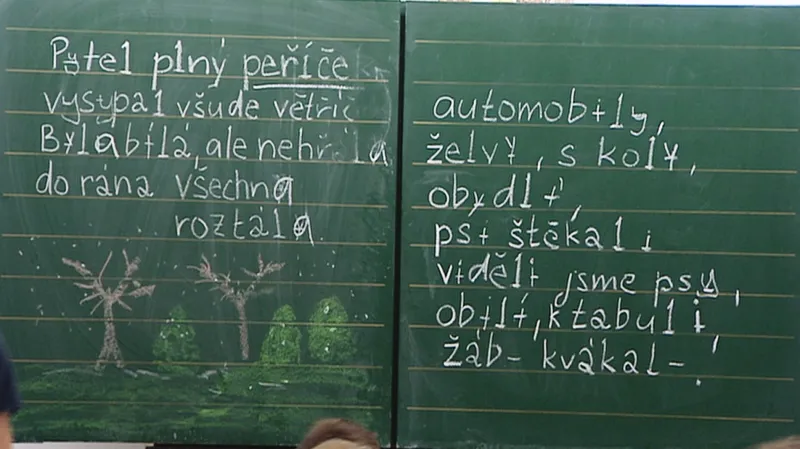 Pytel plný peříče
vysypal všude větříč
Byla bílá, ale nehřála
do rána všechna
roztála.
automobily,
želvy, s koly,
obydlí,
psi štěkali
viděli jsme psy,
obilí, k tabuli,
žáb- kvákal-.